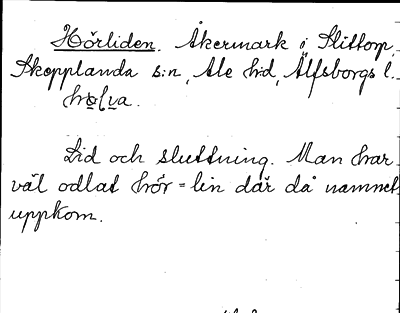 Hörliden. Åkermark i Slittorp,
Skepplanda s:n, Ale hd, Älfsborgs l.
Lid och sluttning. Man har
väl odlat hör = lin där då namnet
uppkom.